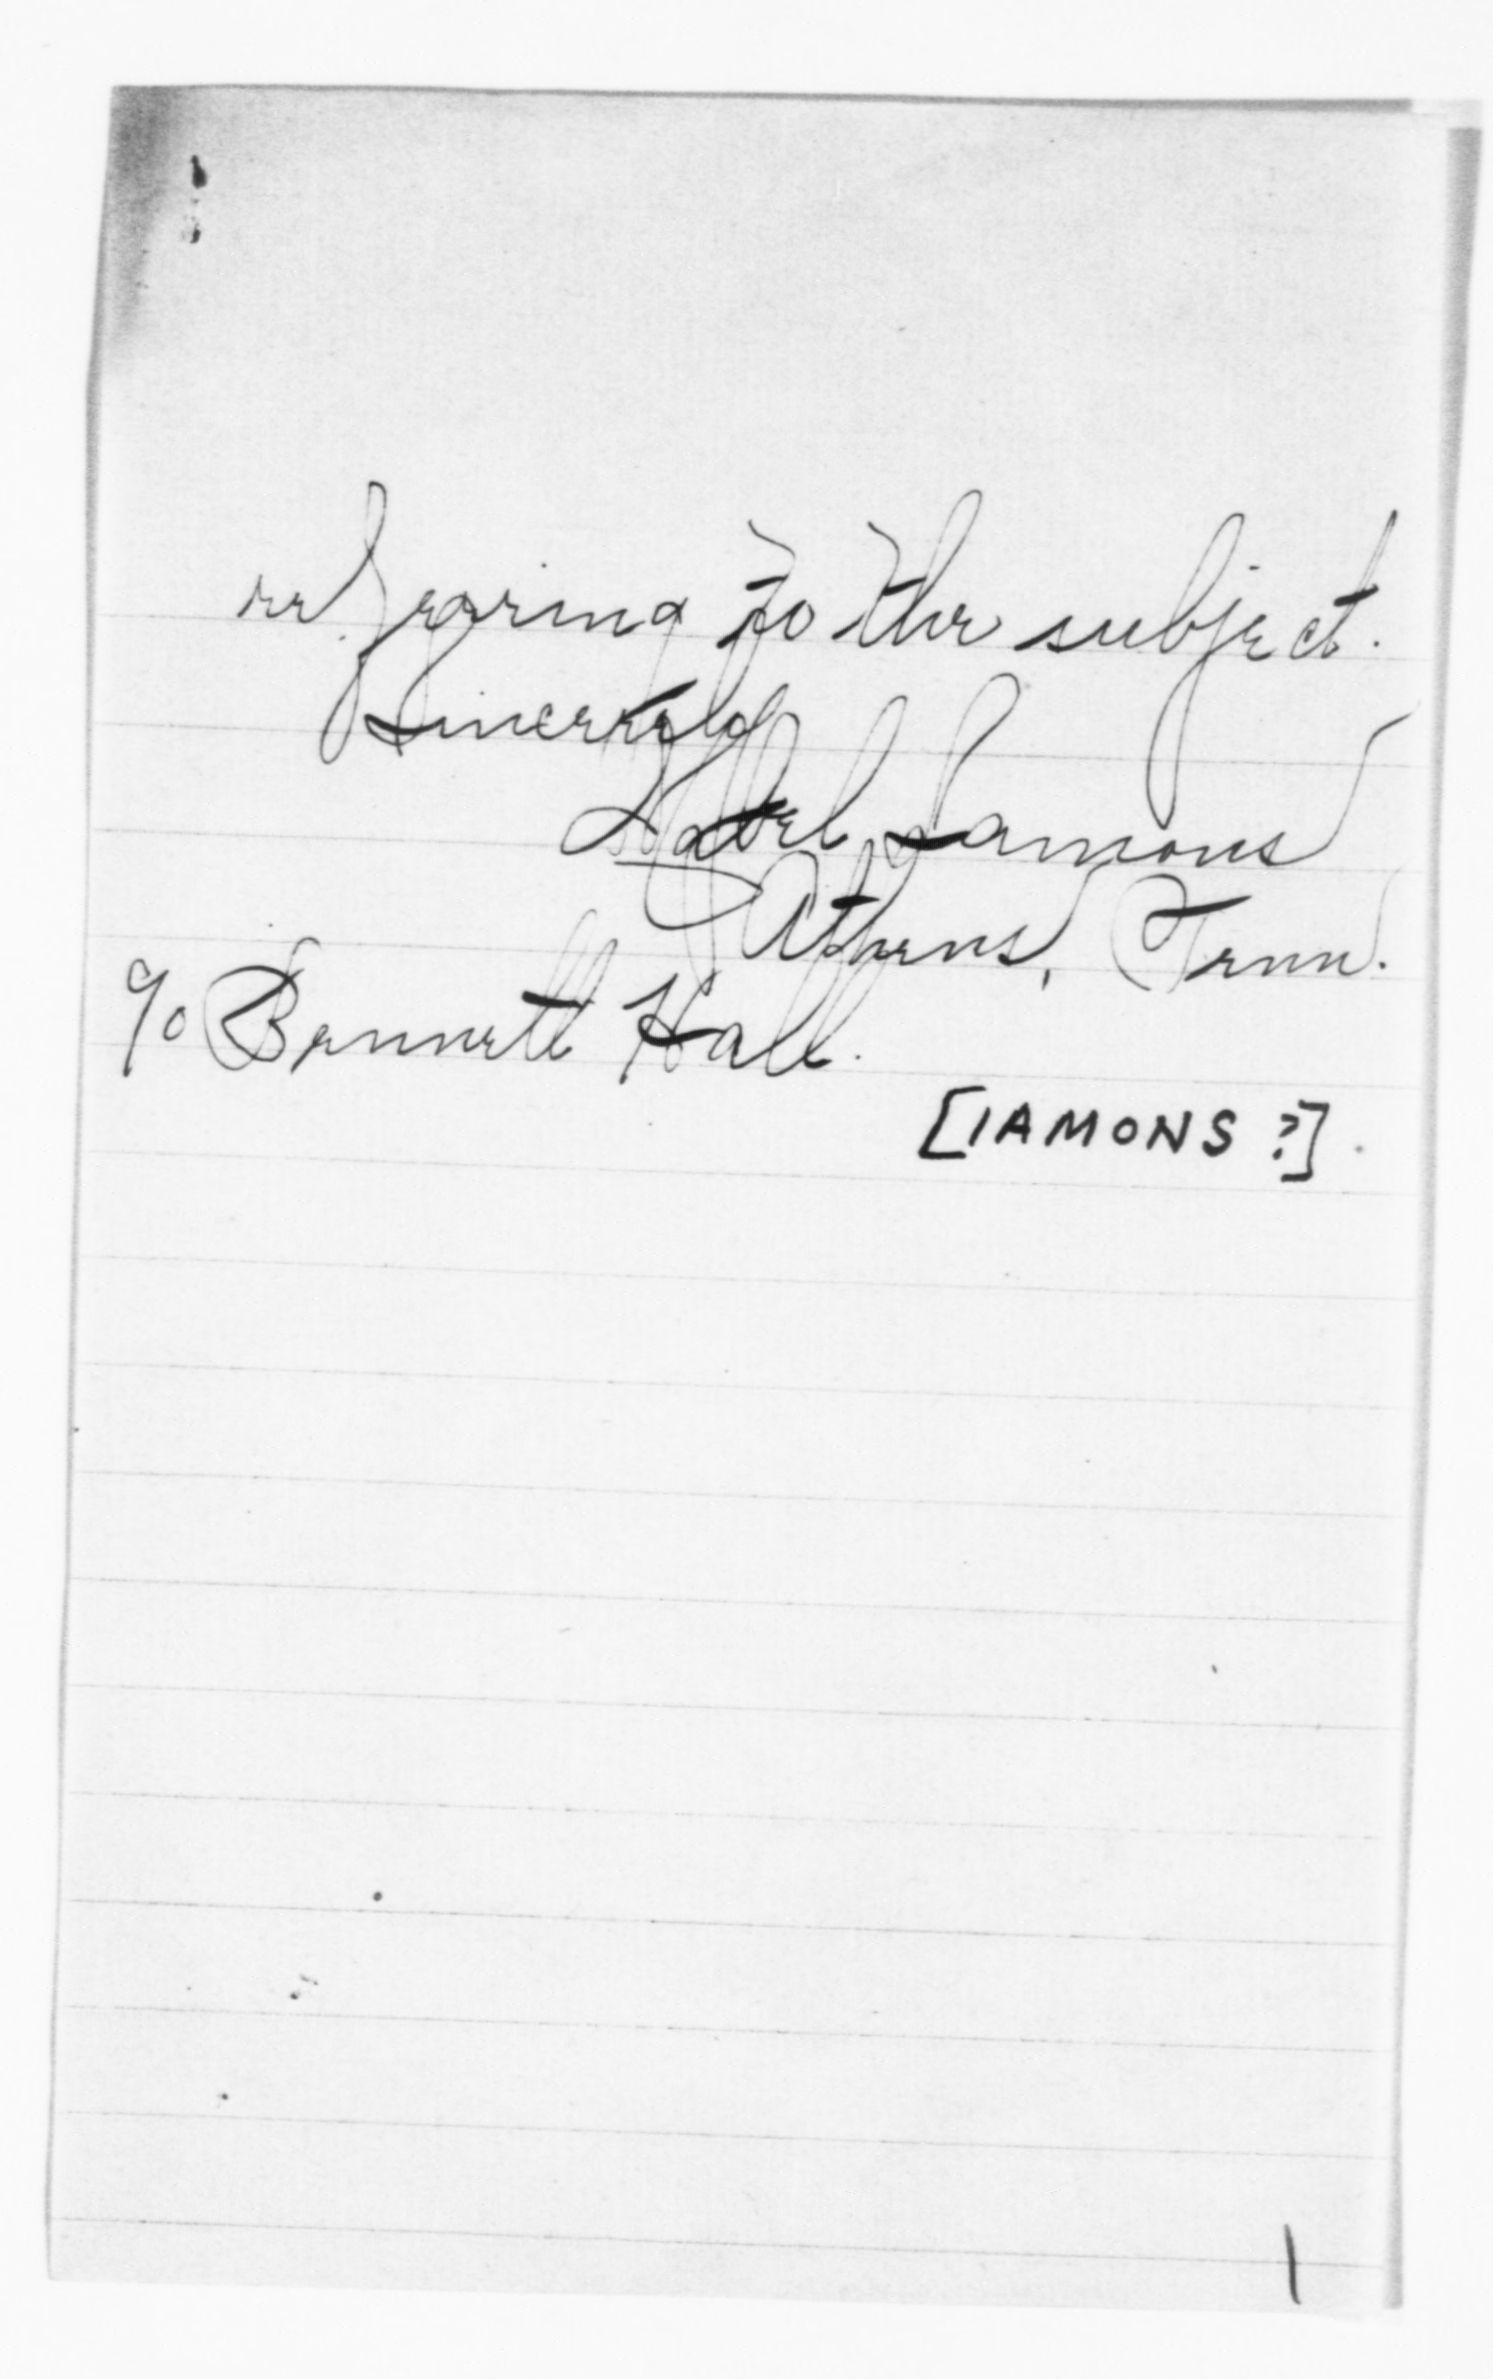 referring to the subject.
Sincerely
Lamons
Athens, Tenn.
c/o Bennett Hall.
[IAMONS ?].